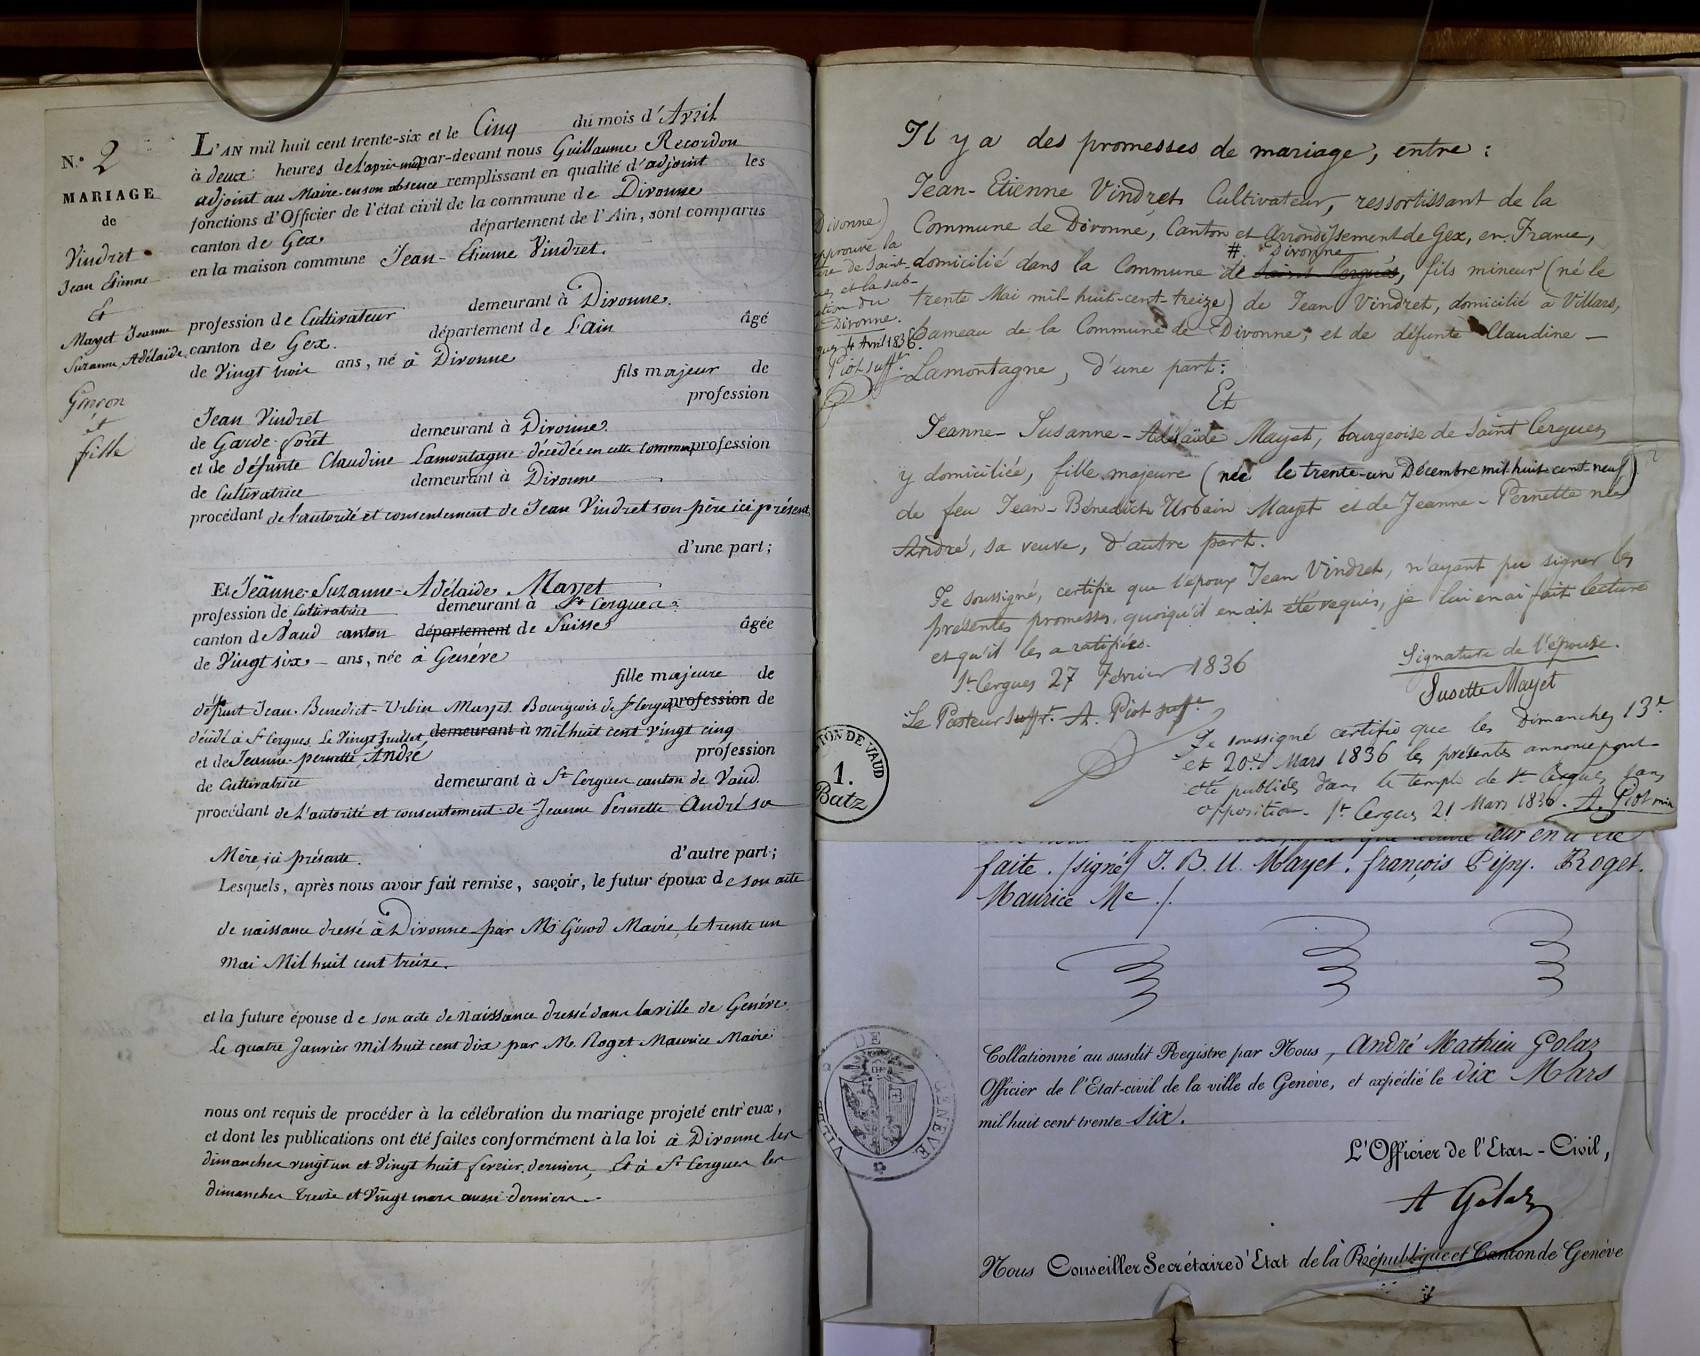 N.° 2
MARIAGE
de
Vindret
Jean Etienne
Et
Mayet Jeanne
Suzanne Adélaide
Garcon
et
fille
L'AN mil huit cent trente-six et le Cinq du mois d'Avril
à deux heures de l'après-midi par-devant nous Guillaume Recordon
adjoint au Maire en son absence remplissant en qualité d'adjoint les
fonctions d'Officier de l'état civil de la commune de Divonne
canton de Gex département de l'Ain, sont comparus
en la maison commune Jean-Etienne Vindret.
profession de Cultivateur demeurant à Divonne.
canton de Gex. département de L'ain âgé
de Vingt trois ans, né à Divonne
fils majeur de
Jean Vindret profession
de Garde-forêt demeurant à Divonne
et de défunte Claudine Lamontagne décédée en cette commune profession
de Cultivatrice demeurant à Divonne
procédant de l'autorité et consentement de Jean Vindret son père ici présent
d'une part;
Et Jeanne-Suzanne-Adélaide Mayet
profession de Cultivatrice demeurant à St Cergues
canton de Vaud canton département de Suisse âgée
de Vingt six ans, née à Genéve
fille majeure de
défunt Jean-Benedict-Urbin Mayet Bourgeois de St Cergues profession de
décédé à St Cergues Le Vingt Juillet demeurant à mil huit cent Vingt cinq
et de Jeanne-pernette André profession
de Cultivatrice demeurant à St Cergues canton de Vaud
procédant de L'autorité et consentement de Jeanne Pernette André sa
Mère ici présente. d'autre part;
Lesquels, après nous avoir fait remise, savoir, le futur époux de son acte
de naissance dressé à Divonne par Mr Girod Maire, le trente un
mai Mil huit cent treize.
et la future épouse de son acte de Naissance dressé dans la ville de Genéve
Le quatre Janvier mil huit cent dix par M. Roget Maurice Maire
nous ont requis de procéder à la célébration du mariage projeté entr'eux,
et dont les publications ont été faites conformément à la loi à Divonne les
dimanches vingt un et Vingt huit fevrier derniers, Et à St Cergues les
dimanches treize et Vingt mars aussi derniers.
Il y a des promesses de mariage, entre:
Jean-Etienne Vindret, Cultivateur, ressortissant de la
Commune de Divonne, Canton et arrondissement de Gex, en France,
# Divonne
domicilié dans la Commune de Saint Cergues, fils mineur (né le
trente Mai mil-huit-cent-treize) de Jean Vindret, domicilié à Villars,
hameau de la Commune de Divonne; et de défunte Claudine
Lamontagne, d'une part:
Et
Jeanne-Susanne-Adélaïde Mayet, bourgeoise de Saint Cergues
y domiciliée, fille majeure (née le trente-un Décembre mil-huit-cent-neuf)
de feu Jean-Bénédict Urbain Mayet et de Jeanne-Pernette née
André, sa veuve, d'autre part.
Je soussigné, certifie que l'époux Jean Vindret, n'ayant pu signer les
présentes promesses, quoiqu'il en ait été requis, je lui en ai fait lecture
et qu'il les a ratifiées.
St Cergues 27 Fevrier 1836
Le Pasteur suffr. A. Piot suffr.
Signature de l'épouse.
Susette Mayet
Je soussigné certifie que les Dimanches 13e
et 20e Mars 1836 les présentes annonces ont
été publiées dans le temple de St Cergues sans
opposition. St Cergues 21 Mars 1836. A. Piot min
Divonne)
approuvé la
de Saint-
et la sub-
du
Divonne.
4 Avril 1836.
Piot suffr.
CANTON DE VAUD
1.
Batz
faite. (signé) J. B. U. Mayet. françois Pipy. Roget.
Maurice Me ./.
VILLE DE GENEVE
Collationné au susdit Registre par Nous, André Mathieu Golaz
Officier de l'Etat-civil de la ville de Genève, et expédié le dix Mars
mil huit cent trente six.
L'Officier de l'Etat-Civil,
A Golaz
Nous Conseiller Secrétaire d'Etat de la République et Canton de Genéve